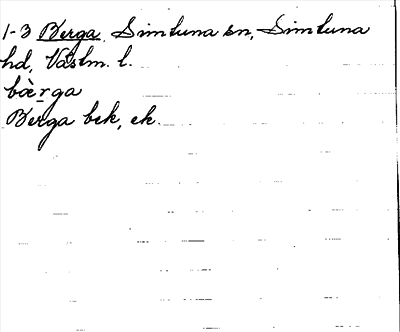 1-3 Berga, Simtuna sn, Simtuna
hd, Västm. l.
bæ̀rga
Berga bek, ek.